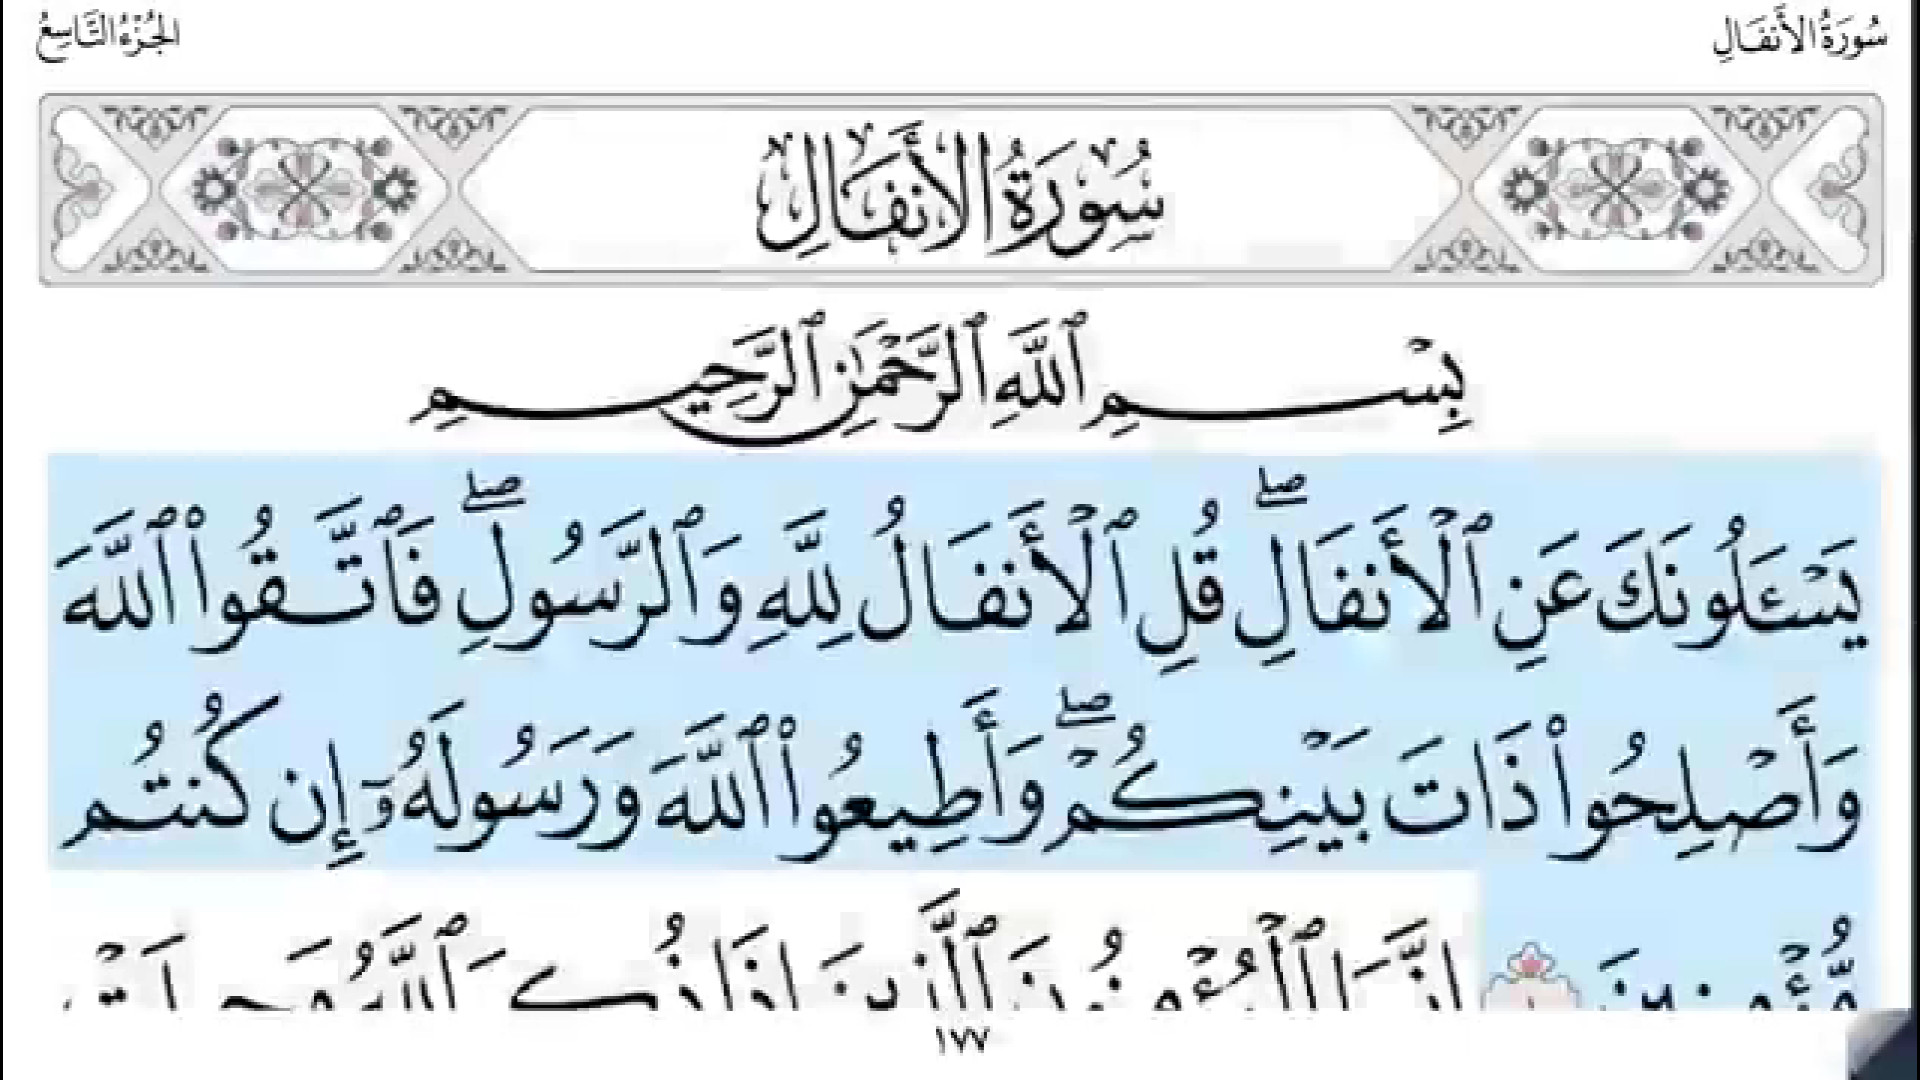 سُورَةُ الأَنفَالِ
الجُزْءُ التَّاسِعُ
سُورَةُ الأَنفَالِ
بِسْمِ ٱللَّهِ ٱلرَّحْمَٰنِ ٱلرَّحِيمِ
يَسْـَٔلُونَكَ عَنِ ٱلْأَنفَالِۖ قُلِ ٱلْأَنفَالُ لِلَّهِ وَٱلرَّسُولِۖ فَٱتَّقُوا۟ ٱللَّهَ
وَأَصْلِحُوا۟ ذَاتَ بَيْنِكُمْۖ وَأَطِيعُوا۟ ٱللَّهَ وَرَسُولَهُۥٓ إِن كُنتُم
مُّؤْمِنِينَ إِنَّمَا ٱلْمُؤْمِنُونَ ٱلَّذِينَ إِذَا ذُكِرَ ٱللَّهُ وَجِلَتْ
١٧٧